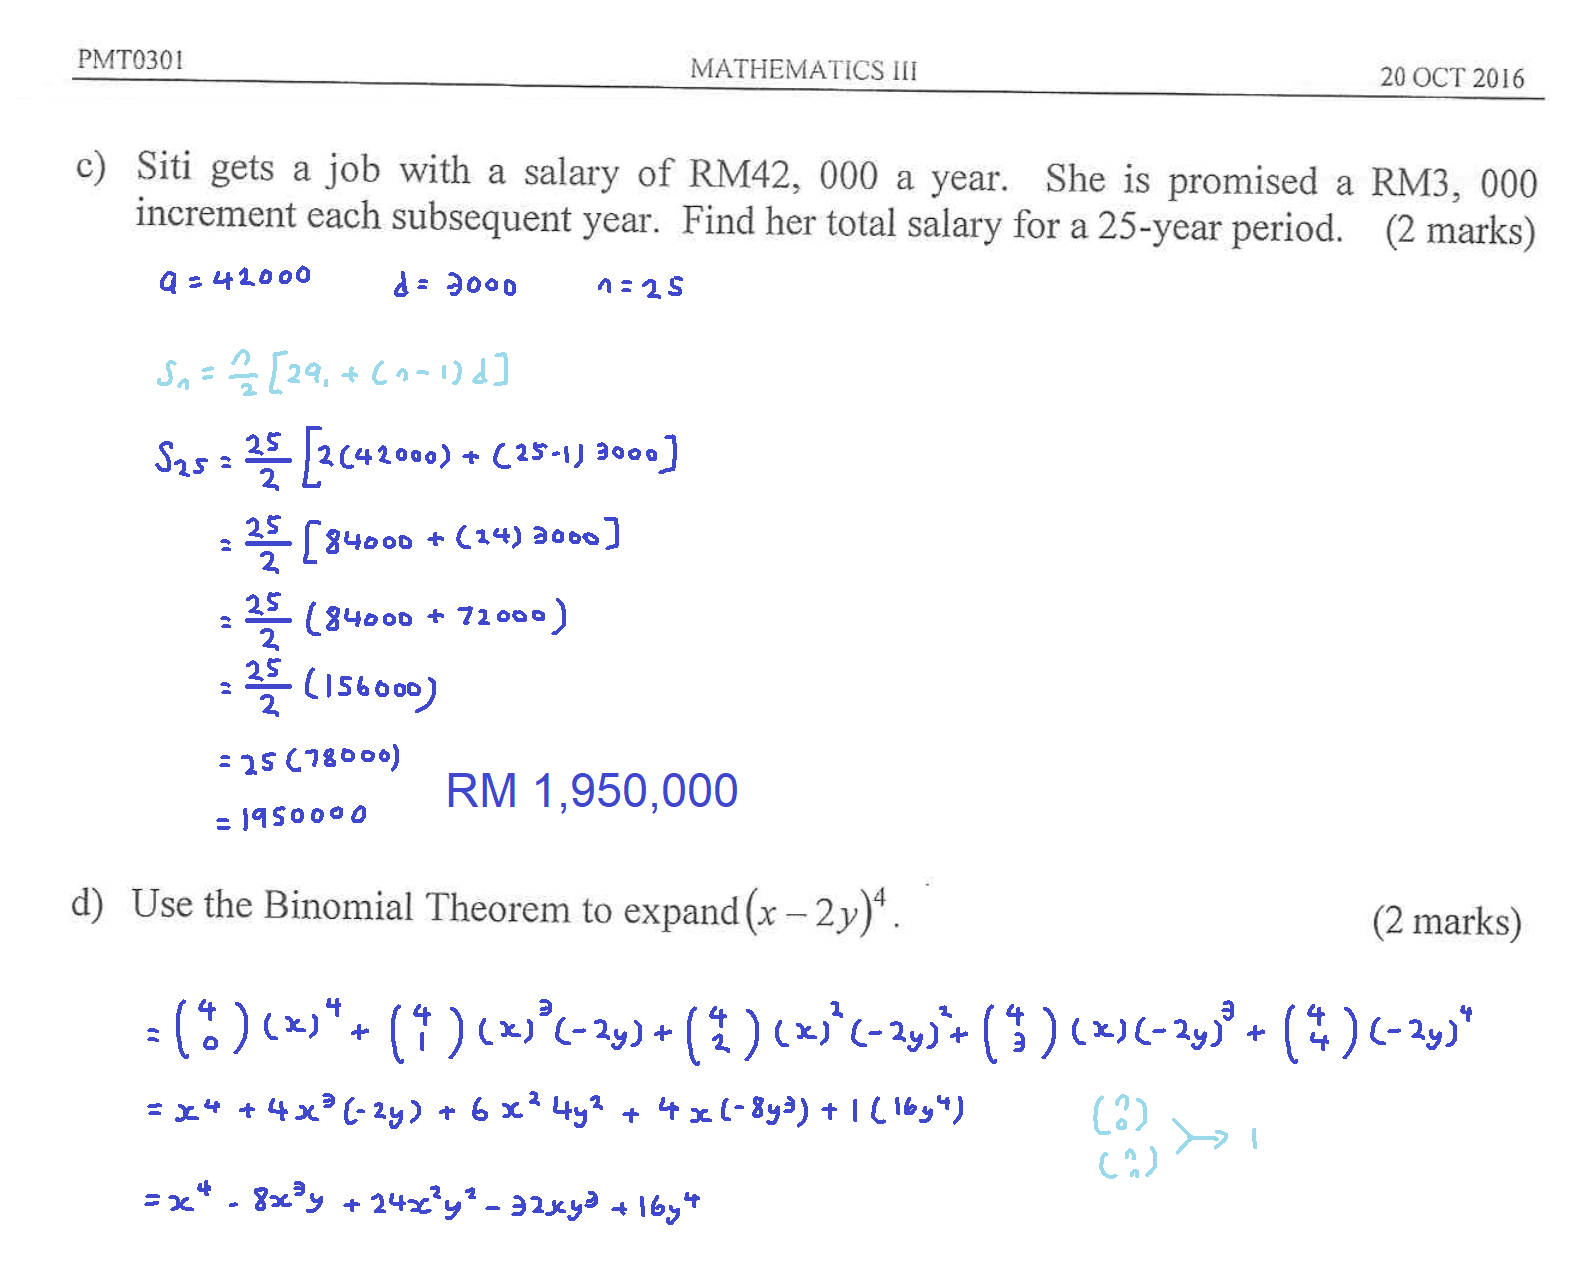 PMT0301 MATHEMATICS III 20 OCT 2016
c) Siti gets a job with a salary of RM42, 000 a year. She is promised a RM3, 000
increment each subsequent year. Find her total salary for a 25-year period. (2 marks)
a = 42000 d = 3000 n = 25
Sₙ = n/2 [2a₁ + (n-1)d]
S₂₅ = 25/2 [2(42000) + (25-1)3000]
= 25/2 [84000 + (24)3000]
= 25/2 (84000 + 72000)
= 25/2 (156000)
= 25(78000)
= 1950000 RM 1,950,000
d) Use the Binomial Theorem to expand (x – 2y)⁴. (2 marks)
= (4 0)(x)⁴ + (4 1)(x)³(-2y) + (4 2)(x)²(-2y)² + (4 3)(x)(-2y)³ + (4 4)(-2y)⁴
= x⁴ + 4x³(-2y) + 6x²4y² + 4x(-8y³) + 1(16y⁴)
(n 0) (n n) → 1
= x⁴ - 8x³y + 24x²y² - 32xy³ + 16y⁴